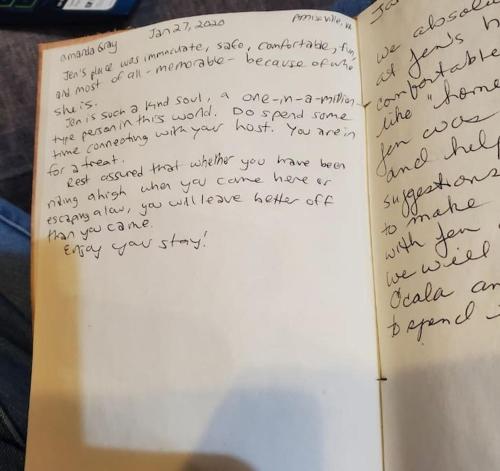 amanda Gray
Jan 27, 2020
Jen's place was immaculate, safe, comfortable, fun,
and most of all - memorable - because of who
she is.
Jen is such a kind soul, a one-in-a-million-
type person in this world. Do spend some
time connecting with your host. You are in
for a treat.
Rest assured that whether you have been
riding a high when you came here or
escaping a low, you will leave better off
than you came.
Enjoy your stay!
we absolu
at Jen's h
comfortable
like "home
Jen was
and help
suggestions
to make
with Jen
we will
Ocala an
Depend